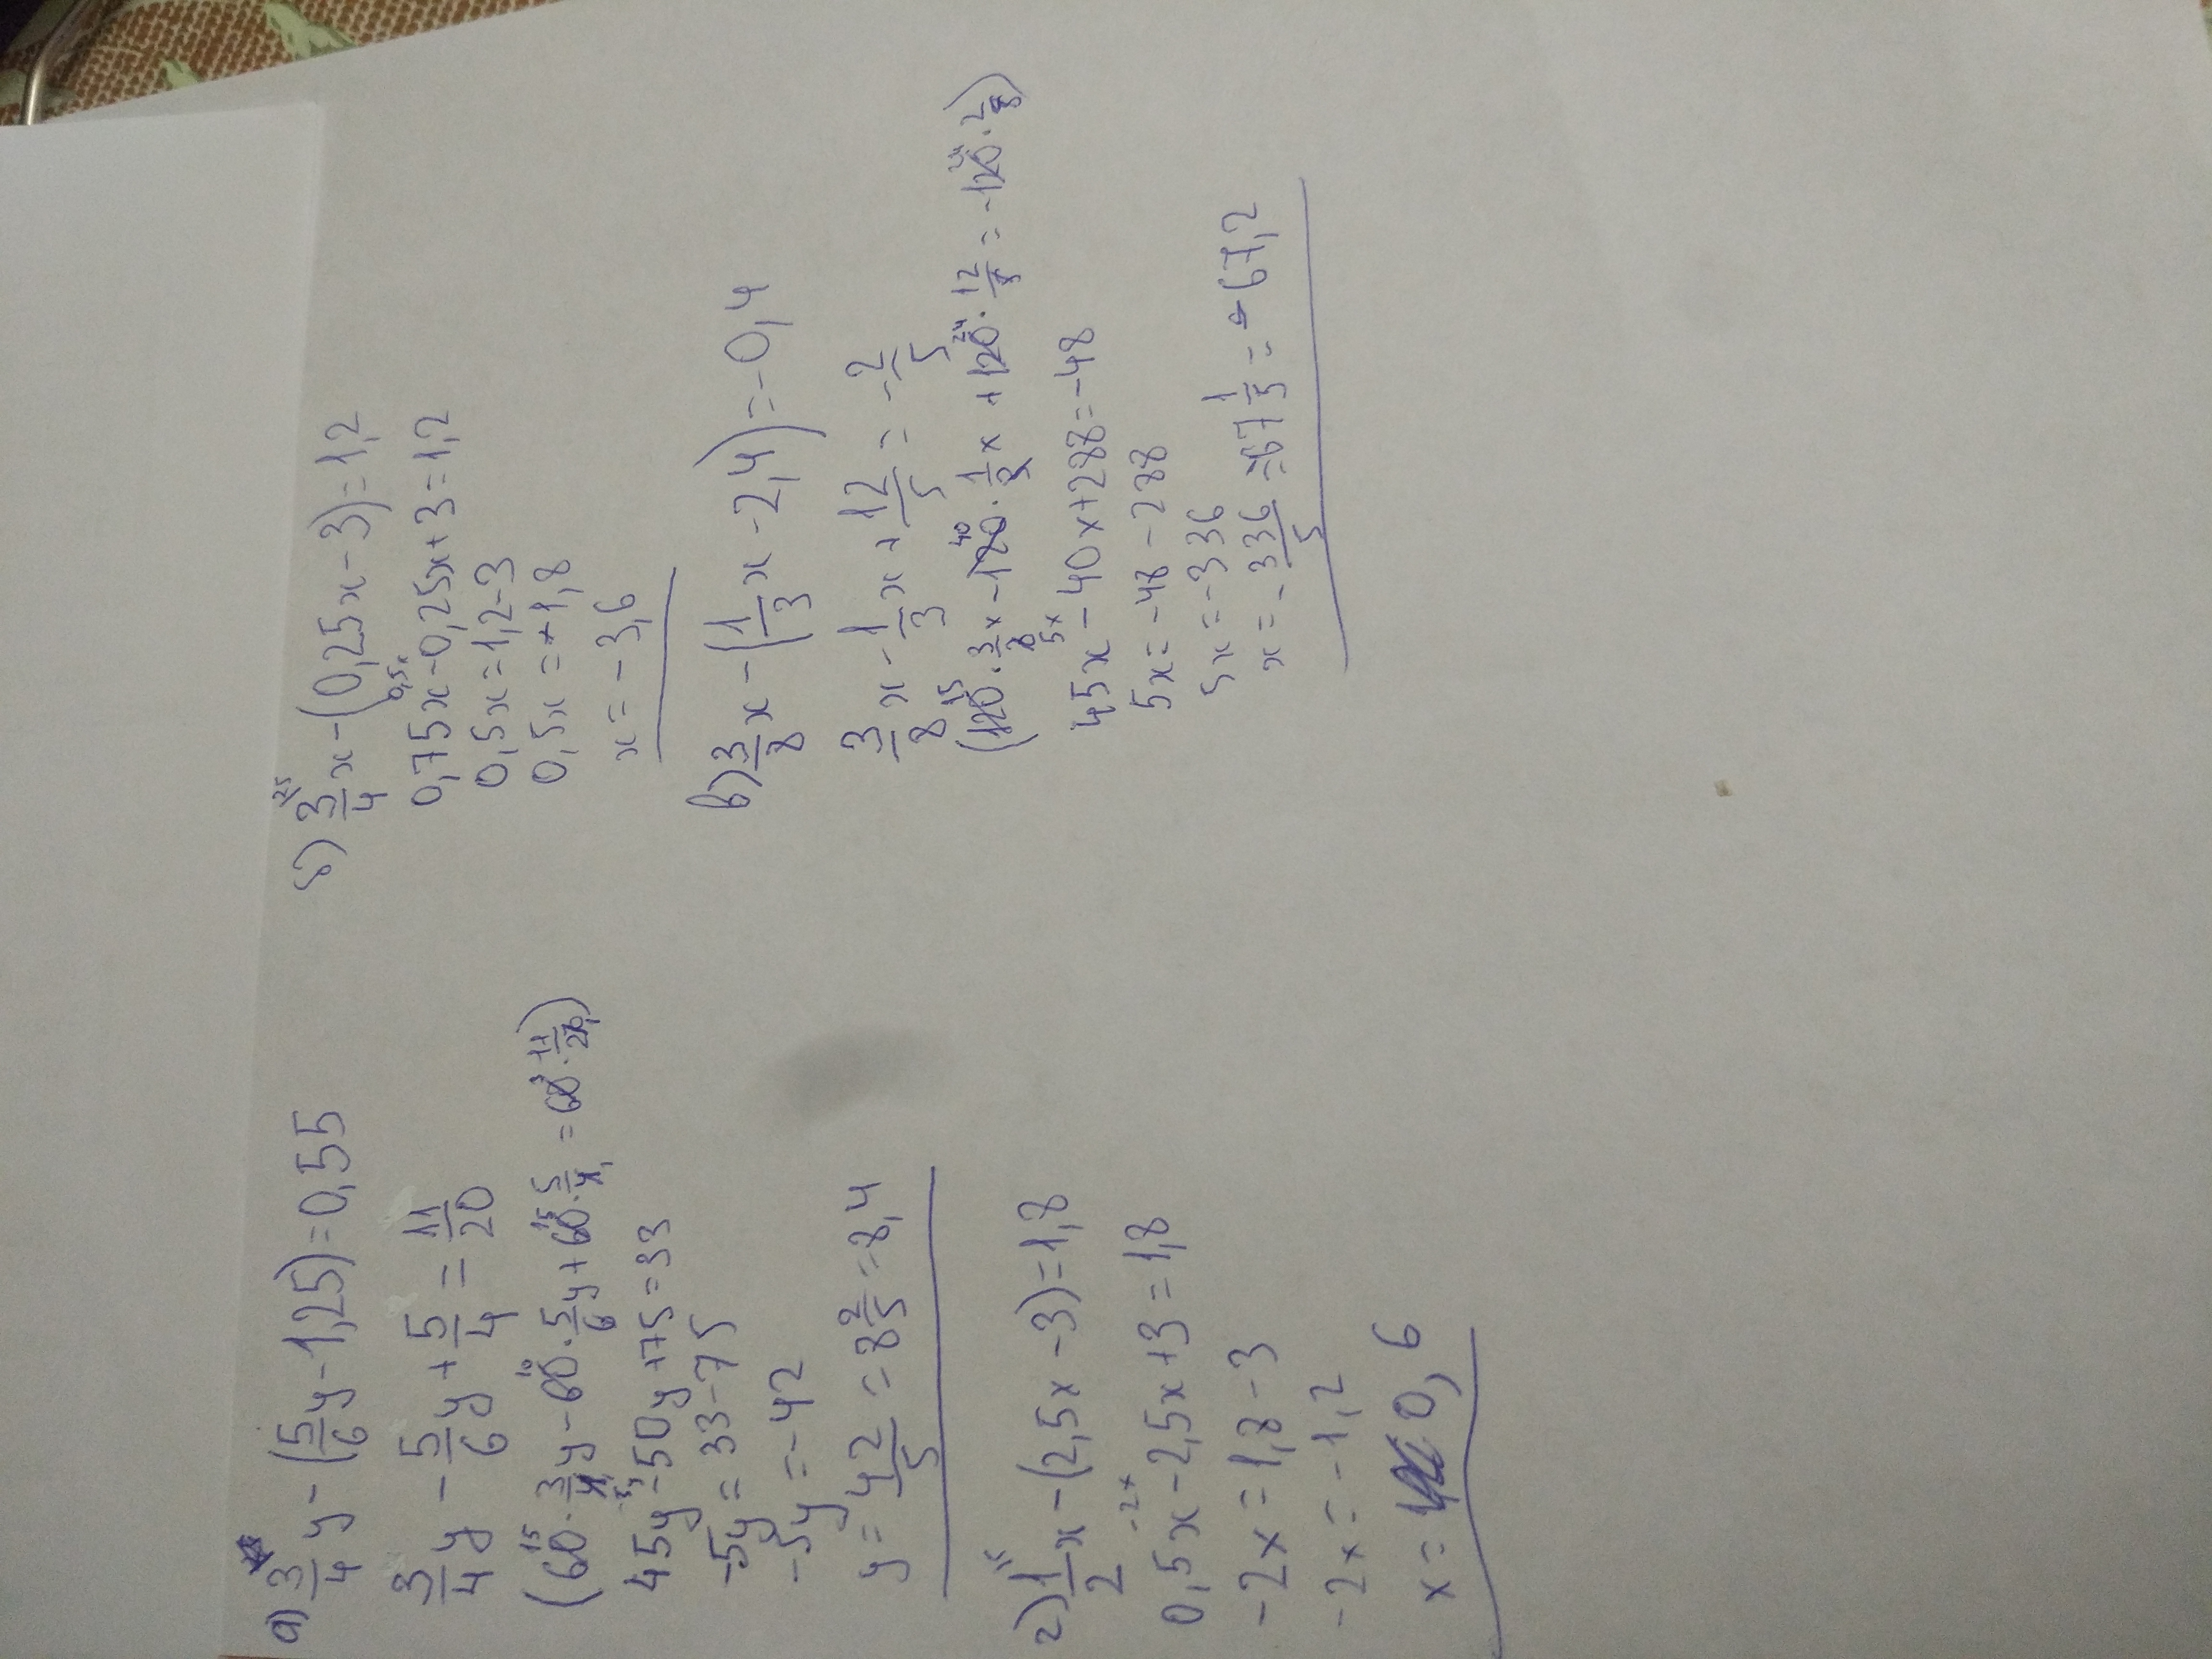 а) 3/4 y - (5/6 y - 1,25) = 0,55
3/4 y - 5/6 y + 5/4 = 11/20
(60 · 3/4 y - 60 · 5/6 y + 60 · 5/4 = 60 · 11/20)
45y - 50y + 75 = 33
-5y = 33 - 75
-5y = -42
y = 42/5 = 8 2/5 = 8,4
г) 1/2 x - (2,5x - 3) = 1,8
0,5x - 2,5x + 3 = 1,8
-2x = 1,8 - 3
-2x = -1,2
x = 0,6
б) 3/4 x - (0,25x - 3) = 1,2
0,75x - 0,25x + 3 = 1,2
0,5x = 1,2 - 3
0,5x = -1,8
x = -3,6
в) 3/8 x - (1/3 x - 2,4) = -0,4
3/8 x - 1/3 x + 12/5 = -2/5
(120 · 3/8 x - 120 · 1/3 x + 120 · 12/5 = -120 · 2/5)
45x - 40x + 288 = -48
5x = -48 - 288
5x = -336
x = -336/5 = -67 1/5 = -67,2